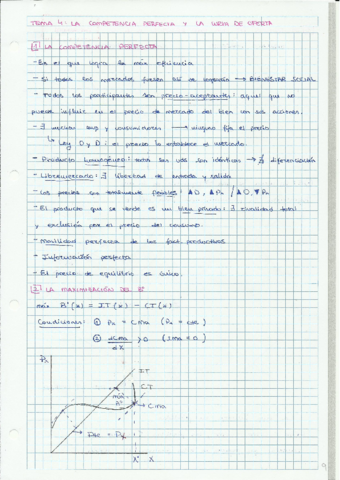 TEMA 4: LA COMPETENCIA PERFECTA Y LA CURVA DE OFERTA
1 LA COMPETENCIA PERFECTA
- Es el que logra la máx eficiencia
- Si todos los mercados fuesen así se lograría → BIENESTAR SOCIAL
- Todos los participantes son precio-aceptantes: aquel que no
puede influir en el precio de mercado del bien con sus acciones.
- ∃ muchas emp y consumidores → ninguno fija el precio
↳ Ley O y D: el precio lo establece el mercado
- Producto homogéneo: todas las uds son idénticas → ∄ diferenciación
- Libremercado: ∃ libertad de entrada y salida
- Los precios son totalmente flexibles: ▲D, ▲Px / ▲O, ▼Px
- El producto que se vende es un bien privado: ∃ rivalidad total
y exclusión por el precio del consumo.
- Movilidad perfecta de los fact. productivos
- Información perfecta
- El precio de equilibrio es único.
2 LA MAXIMIZACIÓN DEL Bº
máx Bº(x) = IT(x) - CT(x)
Condiciones: ① Px = Cma (Px = cte)
② dCma/dX > 0 (Ima = 0)
Px
IT
CT
máx
Bº
Cma
Px
X* X
9